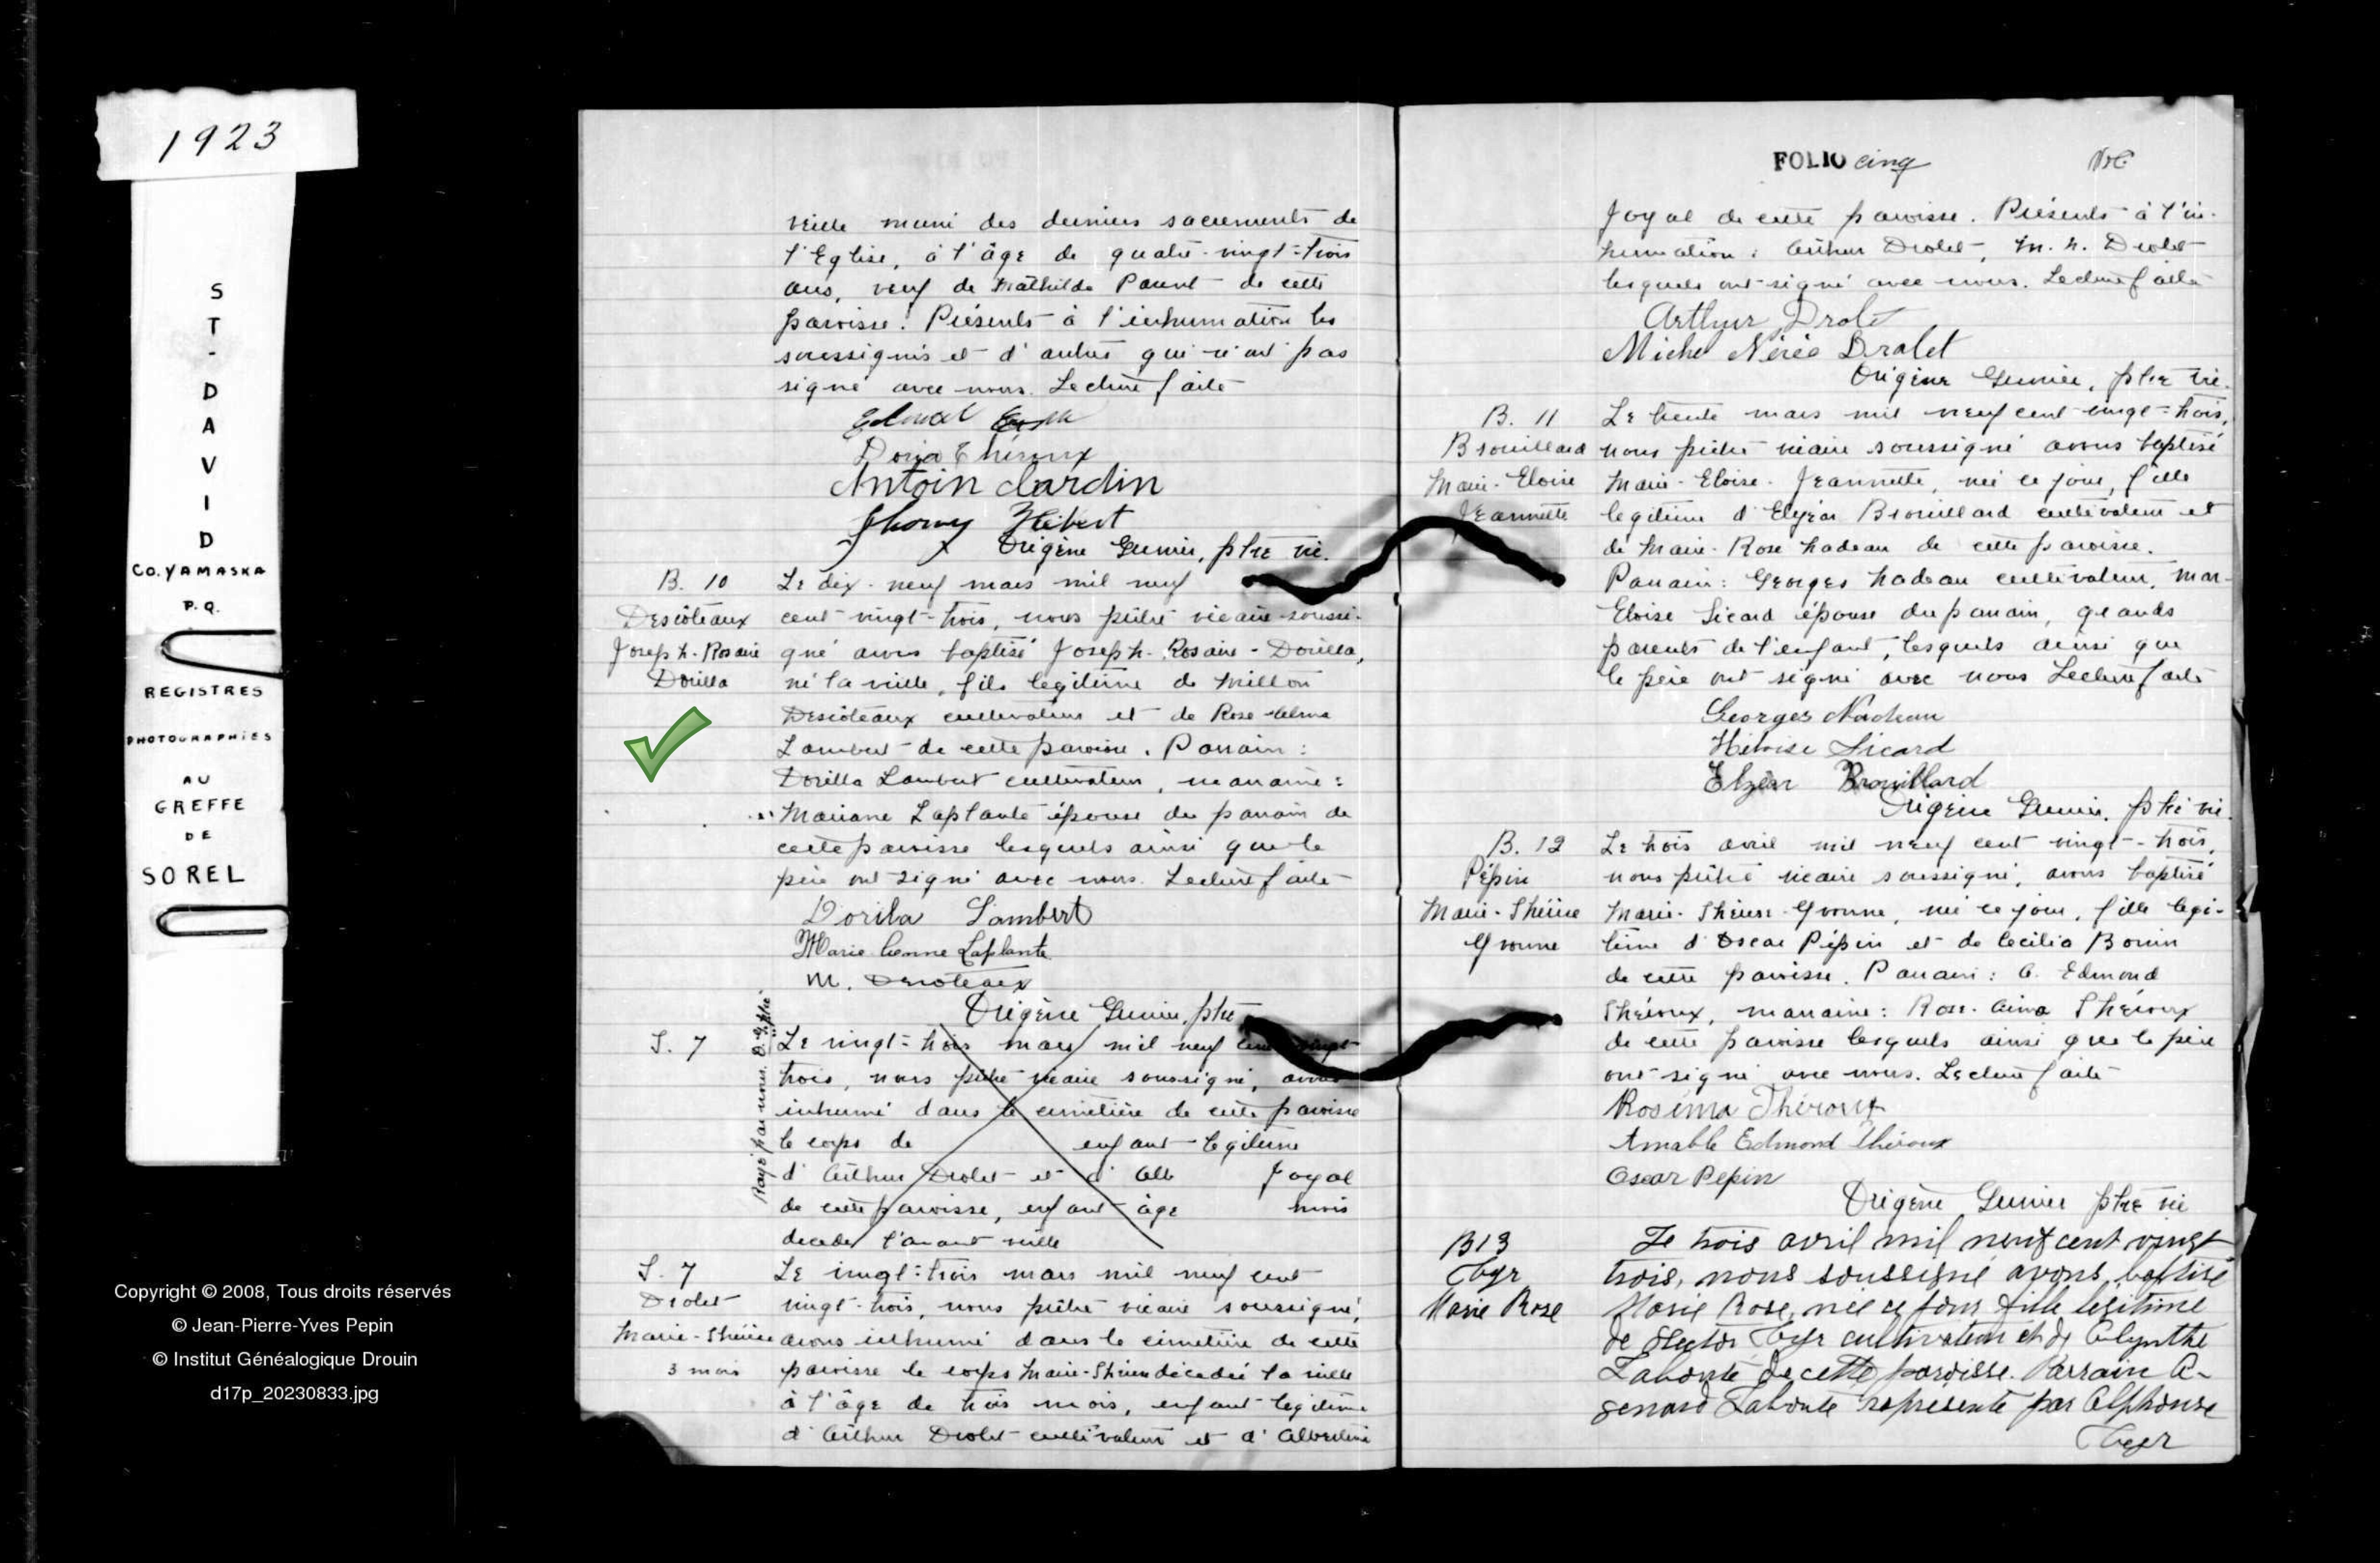 1923
ST-DAVID
CO. YAMASKA
P.Q.
REGISTRES
PHOTOGRAPHIÉS
AU
GREFFE
DE
SOREL
Copyright © 2008, Tous droits réservés
© Jean-Pierre-Yves Pepin
© Institut Généalogique Drouin
d17p_20230833.jpg
veille muni des derniers sacrements de
l'Eglise, à l'âge de quatre-vingt-trois
ans, veuf de Mathilde de cette
paroisse. Présents à l'inhumation les
soussignés et d'autres qui n'ont pas
signé avec nous. Lecture faite
Doria Théroux
Antoin Jardin
Thomy Hébert
Origène Grenier, ptre vic.
B. 10
Descôteaux
Joseph-Rosaire
Dorilla
Le dix-neuf mars mil neuf
cent vingt-trois, nous prêtre vicaire soussi-
gné avons baptisé Joseph-Rosaire-Dorilla,
né la veille, fils légitime de Millon
Descôteaux cultivateur et de Rose-Alma
Lambert de cette paroisse. Parrain:
Dorilla Lambert cultivateur, marraine:
Mariane Laplante épouse du parrain de
cette paroisse lesquels ainsi que le
père ont signé avec nous. Lecture faite
Dorila Lambert
Marie Laplante
M. Descôteaux
Origène Grenier, ptre
S. 7
Rayé par nous. O. G. ptre
Le vingt-trois mars mil neuf cent vingt
trois, nous prêtre vicaire soussigné, avons
inhumé dans le cimetière de cette paroisse
le corps de enfant légitime
d'Arthur Drolet et d'Alb Joyal
de cette paroisse, enfant âgé mois
décédé l'avant veille
S. 7
Drolet
Marie-Thérèse
3 mois
Le vingt-trois mars mil neuf cent
vingt-trois, nous prêtre vicaire soussigné,
avons inhumé dans le cimetière de cette
paroisse le corps Marie-Thérèse décédée la veille
à l'âge de trois mois, enfant légitime
d'Arthur Drolet cultivateur et d'Albertine
FOLIO cinq
Joyal de cette paroisse. Présents à l'in-
humation: Arthur Drolet, M. N. Drolet
lesquels ont signé avec nous. Lecture faite
Arthur Drolet
Michel Nérée Drolet
Origène Grenier, ptre vic.
B. 11
Brouillard
Marie-Eloise
Jeannette
Le trente mars mil neuf cent vingt-trois,
nous prêtre vicaire soussigné avons baptisé
Marie-Eloise-Jeannette, née ce jour, fille
légitime d'Elzéar Brouillard cultivateur et
de Marie-Rose Nadeau de cette paroisse.
Parrain: Georges Nadeau cultivateur, mar-
Eloise Sicard épouse du parrain, grands
parents de l'enfant, lesquels ainsi que
le père ont signé avec nous Lecture faite
Georges Nadeau
Héloise Sicard
Elzéar Brouillard
Origène Grenier, ptre vic.
B. 12
Pépin
Marie-Thérèse
Yvonne
Le trois avril mil neuf cent vingt-trois,
nous prêtre vicaire soussigné, avons baptisé
Marie-Thérèse-Yvonne, née ce jour, fille légi-
time d'Oscar Pépin et de Cécilia Bonin
de cette paroisse. Parrain: A. Edmond
Théroux, marraine: Rose-Aima Théroux
de cette paroisse lesquels ainsi que le père
ont signé avec nous. Lecture faite
Rosema Théroux
Amable Edmond Théroux
Oscar Pepin
Origène Grenier ptre vic
B13
Cyr
Marie Rose
Le trois avril mil neuf cent vingt
trois, nous soussigné avons baptisé
Marie Rose, née ce jour fille légitime
de Hector Cyr cultivateur et de
Labonté de cette paroisse. Parrain A-
genard Labonté représenté par Alphonse
Cyr